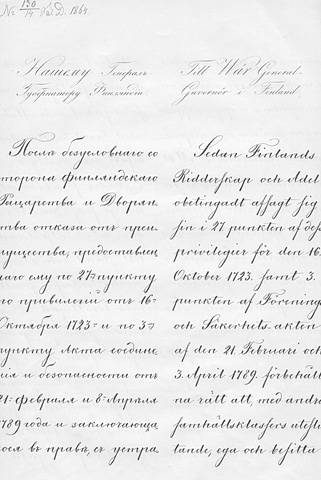 No 130/14 K.D. 1864
Нашему Генералъ-
Губернатору Финляндіи
Послѣ безусловнаго со
стороны финляндскаго
Рыцарства и Дворян
ства отказа отъ преи
мущества, предоставлен
наго ему по 27 пункту
по привилегій отъ 16
Октября 1723 и по 3
пункту Акта соедине
нія и безопасности отъ
21 февраля и 3 Апрѣля
1789 года и заключающа
гося въ правѣ, съ устра
Till Wår General-
Guvernör i Finland.
Sedan Finlands
Ridderskap och Adel
obetingadt afsagt sig
sin i 27 punkten af dess
privilegier för den 16
Oktober 1723 samt 3.
punkten af Förenings
och Säkerhets-akten
af den 21 Februari och
3 April 1789 förbehåll
na rätt att, med andra
samhällsklassers uteslu
tande, ega och besitta